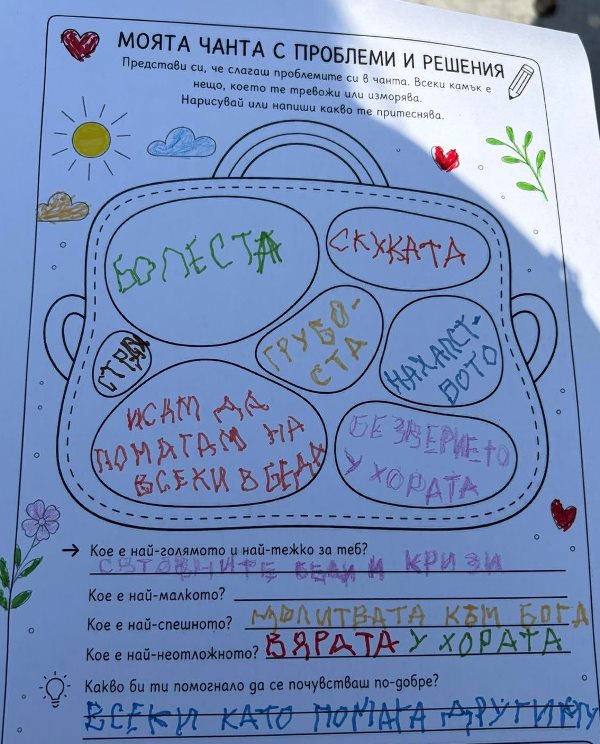 МОЯТА ЧАНТА С ПРОБЛЕМИ И РЕШЕНИЯ
Представи си, че слагаш проблемите си в чанта. Всеки камък е
нещо, което те тревожи или изморява.
Нарисувай или напиши какво те притеснява.
БОЛЕСТА
СКУКАТА
ГРУБО-
СТА
НАХАЛСТ-
ВОТО
СТРАХ
ИСКАМ ДА
ПОМАГАМ НА
ВСЕКИ В БЕДА
БЕЗВЕРИЕТО
У ХОРАТА
→ Кое е най-голямото и най-тежко за теб?
СВТОВНИТЕ БЕДИ И КРИЗИ
Кое е най-малкото?
Кое е най-спешното? МОЛИТВАТА КЪМ БОГА
Кое е най-неотложното? ВЯРАТА У ХОРАТА
Какво би ти помогнало да се почувстваш по-добре?
ВСЕКИ КАТО ПОМАГА ДРУГИМУ